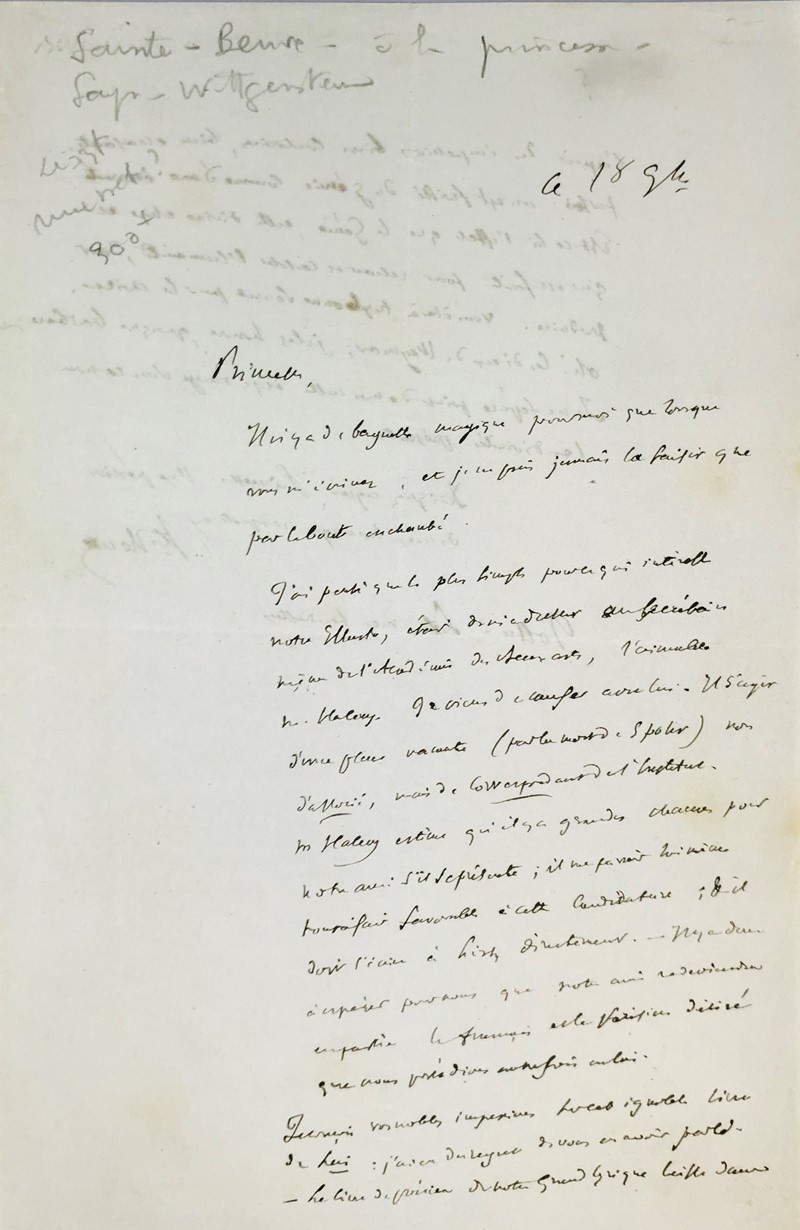 Sainte-Beuve - à la princesse
Sayn-Wittgenstein
Liszt
musset ?
900
ce 18 9bre
Princesse,
Il n'y a de baguette magique pour moi que lorsque
vous m'écrivez, et je ne puis jamais la saisir que
par le bout enchanté.
J'ai pensé que le plus simple pour ce qui intéresse
notre Illustre, était de m'adresser au secrétaire
même de l'Académie des beaux arts, l'aimable
M. Halevy. Je viens de causer avec lui. Il s'agit
d'une place vacante (par la mort de Spohr) non
d'associé, mais de correspondant de l'Institut.
M Halevy estime qu'il y a grandes chances pour
notre ami s'il se présente; il me paraît lui même
tout à fait favorable à cette candidature; & il
doit écrire à Liszt directement. — Il y a donc
à espérer pour nous que notre ami redeviendra
en partie le français et le Parisien désiré
que nous possédions autrefois en lui.
vos nobles sur cet ignoble livre
de Lui : j'ai eu du regret de vous en avoir parlé.
— Le livre dernier de notre Grand lyrique laisse dans